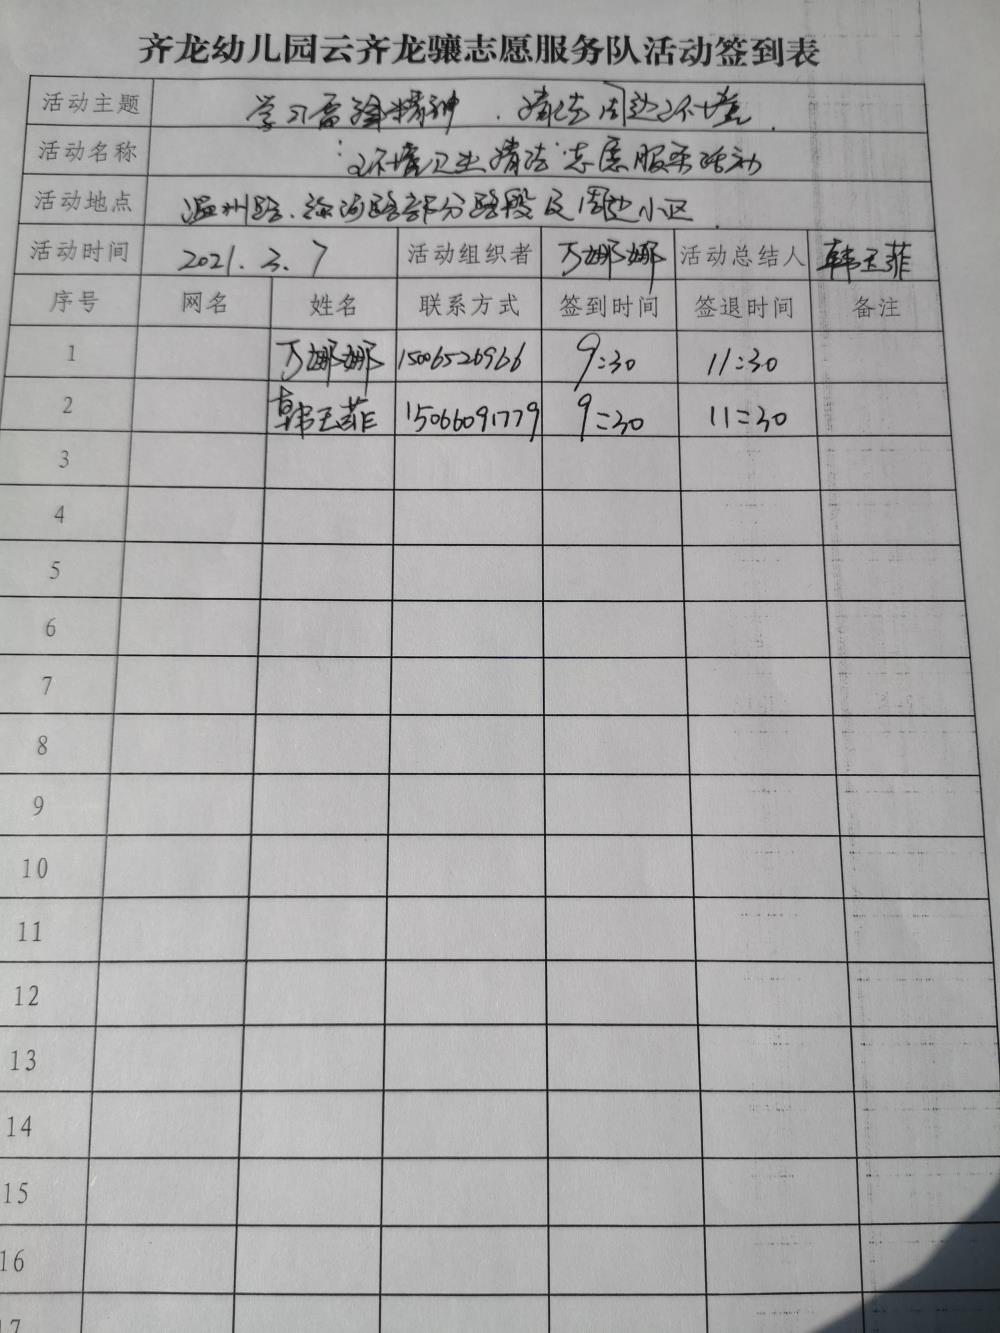 齐龙幼儿园云齐龙骧志愿服务队活动签到表
活动主题 学习雷锋精神、清洁周边环境.
活动名称 "环境卫生清洁"志愿服务活动
活动地点 温州路、漆河路部分路段及周边小区
活动时间 2021.3.7 活动组织者 万娜娜 活动总结人 韩玉菲
序号 网名 姓名 联系方式 签到时间 签退时间 备注
1 万娜娜 15065526966 9:30 11:30
2 韩玉菲 15066091779 9:30 11:30
3
4
5
6
7
8
9
10
11
12
13
14
15
16
17